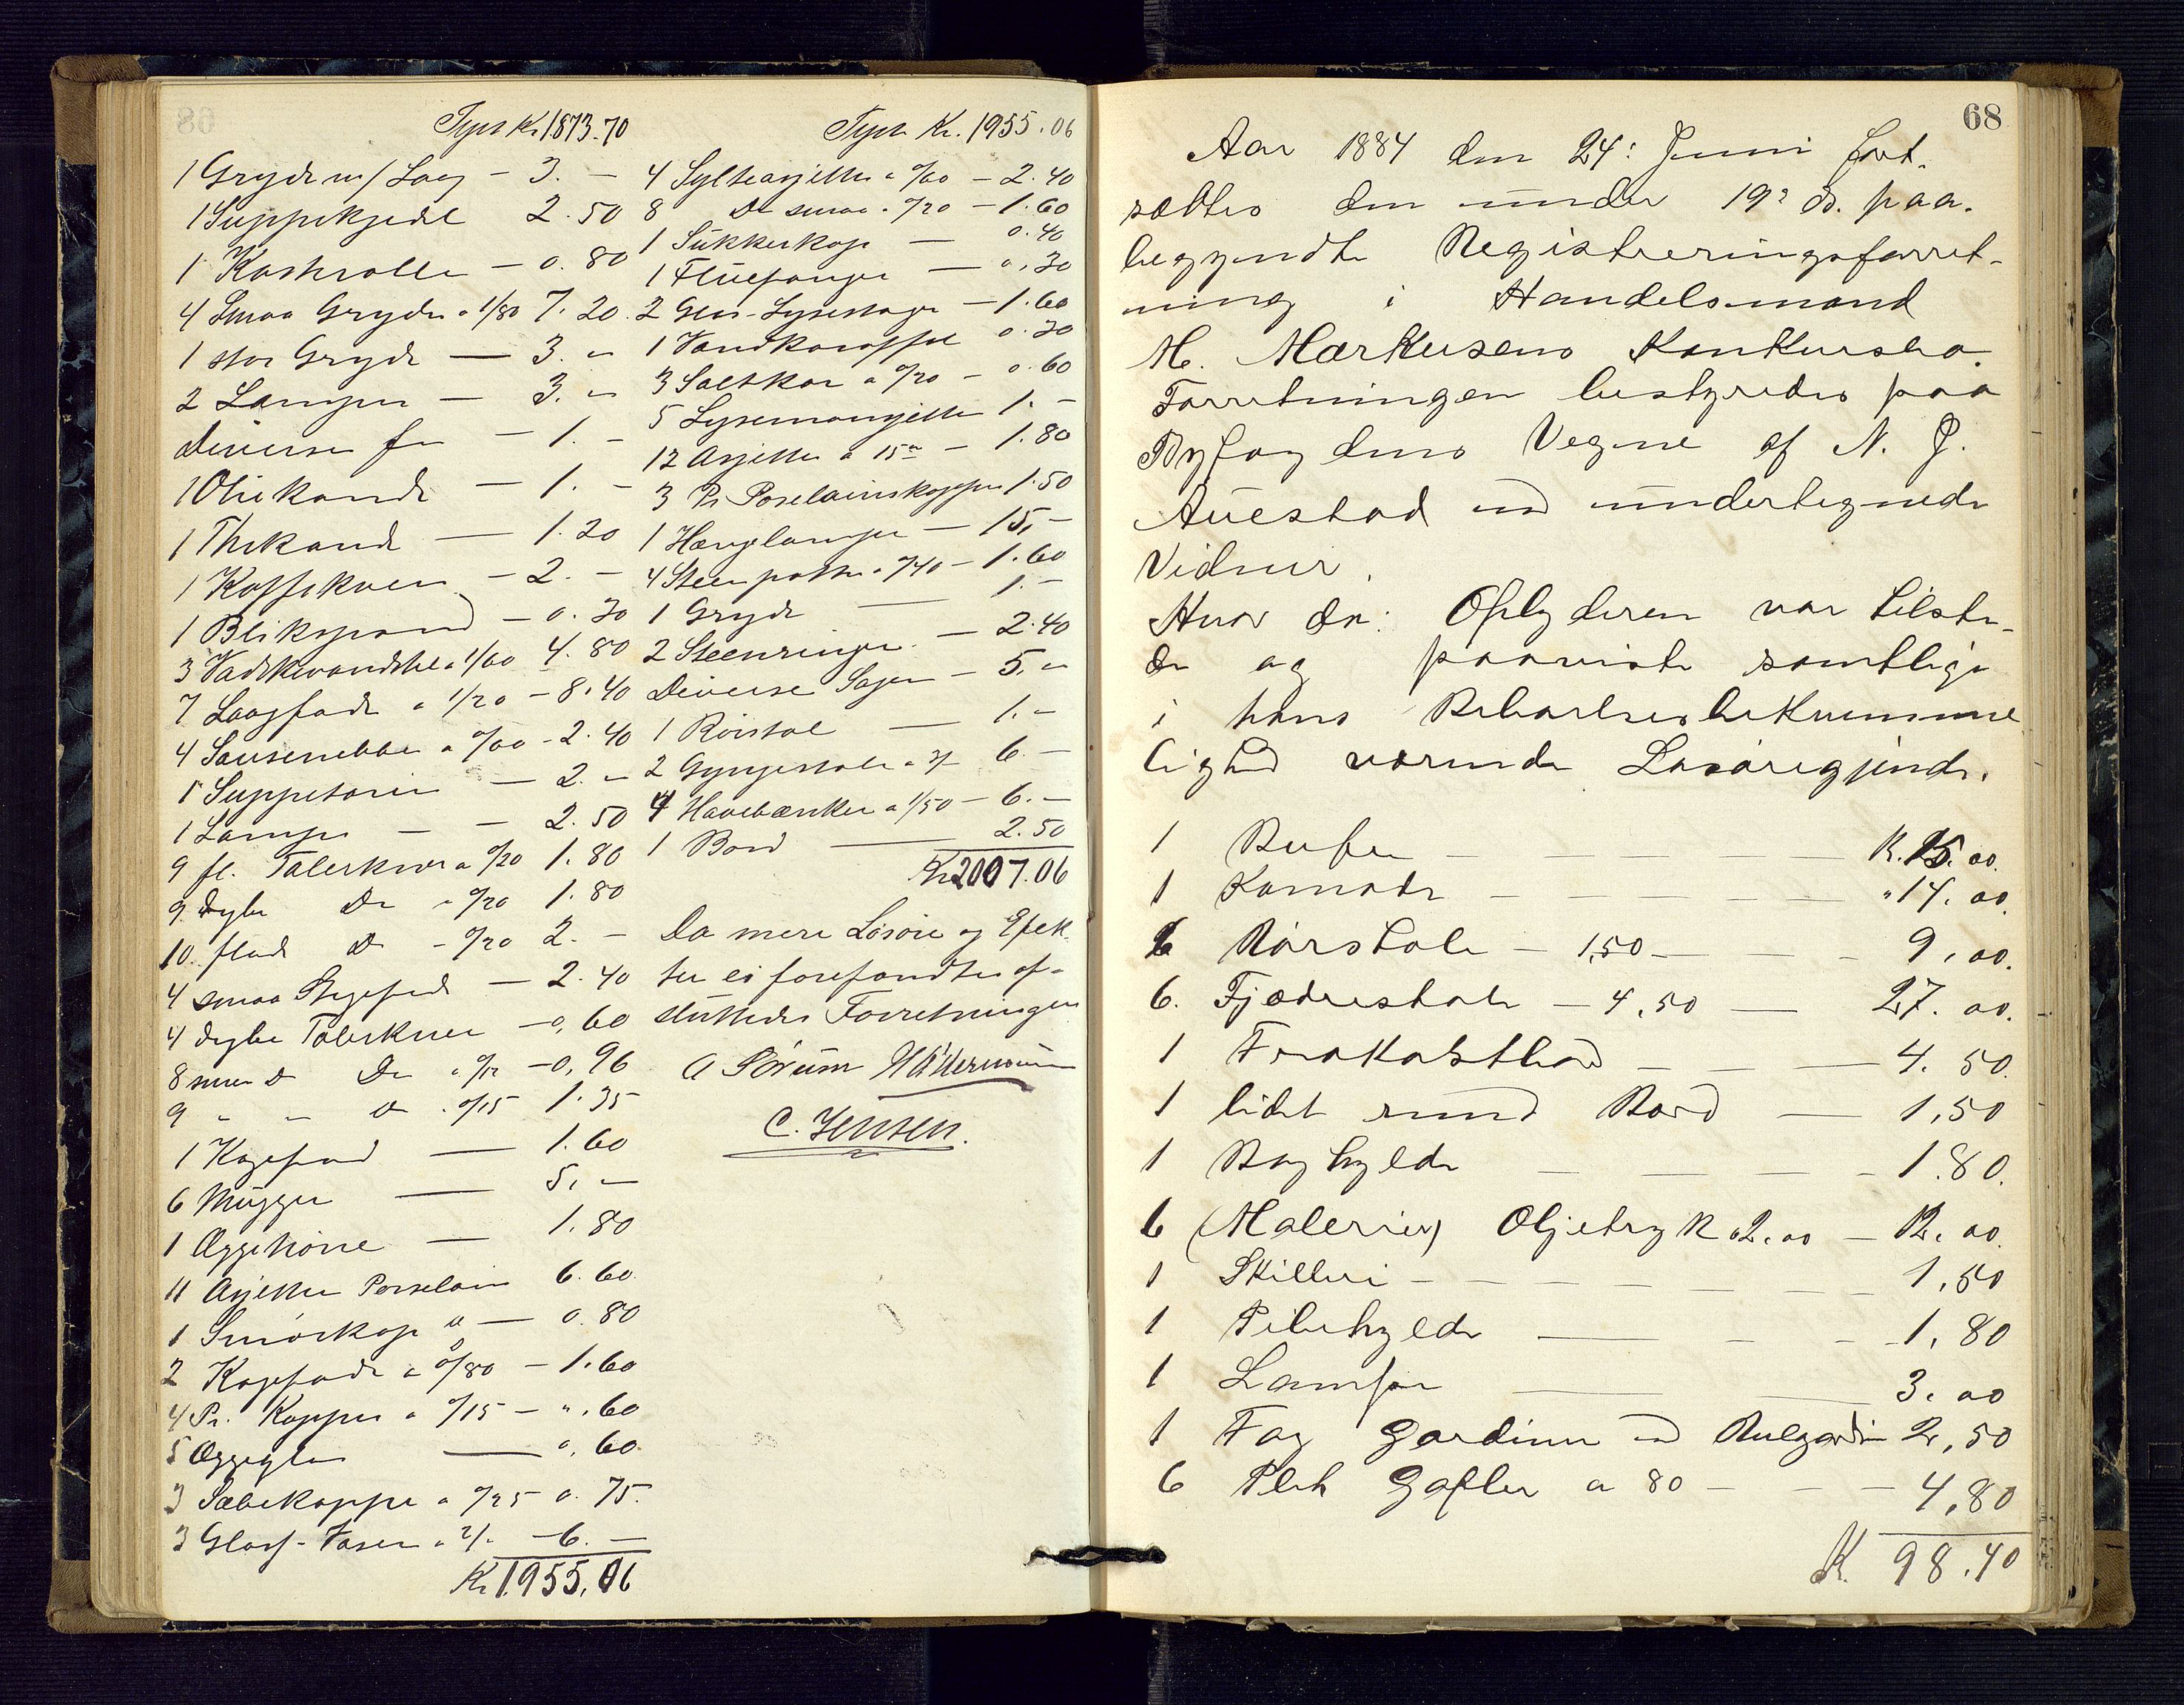 Tprt Kr. 1873.70
1 Gryde m/ Laag – 3. –
1 Suppekjedel 2.50
1 Kastrolle – 0.80
4 Smaa Gryder a 1/80 7.20
1 stor Gryde — 3. "
2 Lamper — 3. "
Diverse for – 1. –
1 Oliekande – 1. –
1 Thekande — 1.20
1 Kaffekvern – 2. –
1 Blikspand – 0.30
3 Vadskevandstel a 1/60 4.80
7 Laagfade a 1/20 – 8.40
4 Sausenebber a 0/60 – 2.40
1 Suppeterin — 2. "
1 Lampe — – 2.50
9 fl. Talerkner a 0/20 1.80
9 dybe Do a 0/20 1.80
10 flade Do - 0/20 2. –
4 smaa Stegefade — 2.40
4 dybe Talerkner – 0,60
8 smaa Do a 0/12 – 0,96
9 " " Do a 0/15 1.35
1 Kagefad — 1.60
6 Mugger — 5, –
1 Æggehøne — 1.80
11 Asjetter Porselain 6.60
1 Smørkop " — 0.80
2 Kagefade a 0/80 – 1.60
4 Pr. Kopper a 0/15 – ".60
5 Æggeglas — 0,60
3 Sæbekopper a 0/25 0.75.
3 Glass-Vaser a 2/. – 6. –
Kr 1955.06
Tprt Kr. 1955.06
4 Sylteasjetter a 0/60 – 2.40
8 Do smaa a 0/20 – 1.60
1 Sukkerkop — 0.40
1 Fluefanger — 0,30
2 Glas-Lysestager – 1.60
1 Vandkaraffel 0.30
3 Saltkar a 0/20 – 0.60
5 Lysemansjetter 1. –
12 Asjetter a 15 – 1.80
3 Pr Porselainskopper 1.50
1 Hængelampe — 15, –
4 Steenpotter a 0/40 – 1.60
1 Gryde — 1. –
2 Steenringer – 2.40
Diverse Sager – 5. "
1 Rørstol — 1. –
2 Gyngestole a 3/ 6. –
4 Havebænker a 1/50 – 6. –
1 Bord — 2.50
Kr 2007.06
Da mere Løsøre og Efek
ter ei forefandtes af-
sluttedes Forretningen
A Sørum
C. Jensen.
68
Aar 1884 den 24: Juni fort-
sættes den under 19de ds. paa-
begyndte Registreringsforret-
ning i Handelsmand
M. Markusens Konkursbo.
Forretningen bestyredes paa
Byfogdens Vegne af N. J.
Auestad med undertegnede
Vidner.
Hvor da: Opbyderen var tilste-
de og paaviste samtlige
i hans Beboelsesbekvemme
lighed værende Løsøregjende.
1 Bufe — — — — K. 15.00
1 Komode — — — — " 14.00.
6 Rørstole – 1,50 — — – 9,00.
6. Fjædrestole – 4,50 — 27.00.
1 Frokostbord — — — 4.50.
1 lidet rund Bord — 1,50
1 Boghylde — — — 1.80.
6 (Malerier) Oljetryk a 2.00 – 12.00.
1 Skilleri – — — — 1,50
1 Pibehylde — – – 1,80
1 Lampe — — 3.00
1 Fag Gardiner med Rulgardin 2,50
6 Plet Gafler a 80 – – – 4,80
K. 98.40